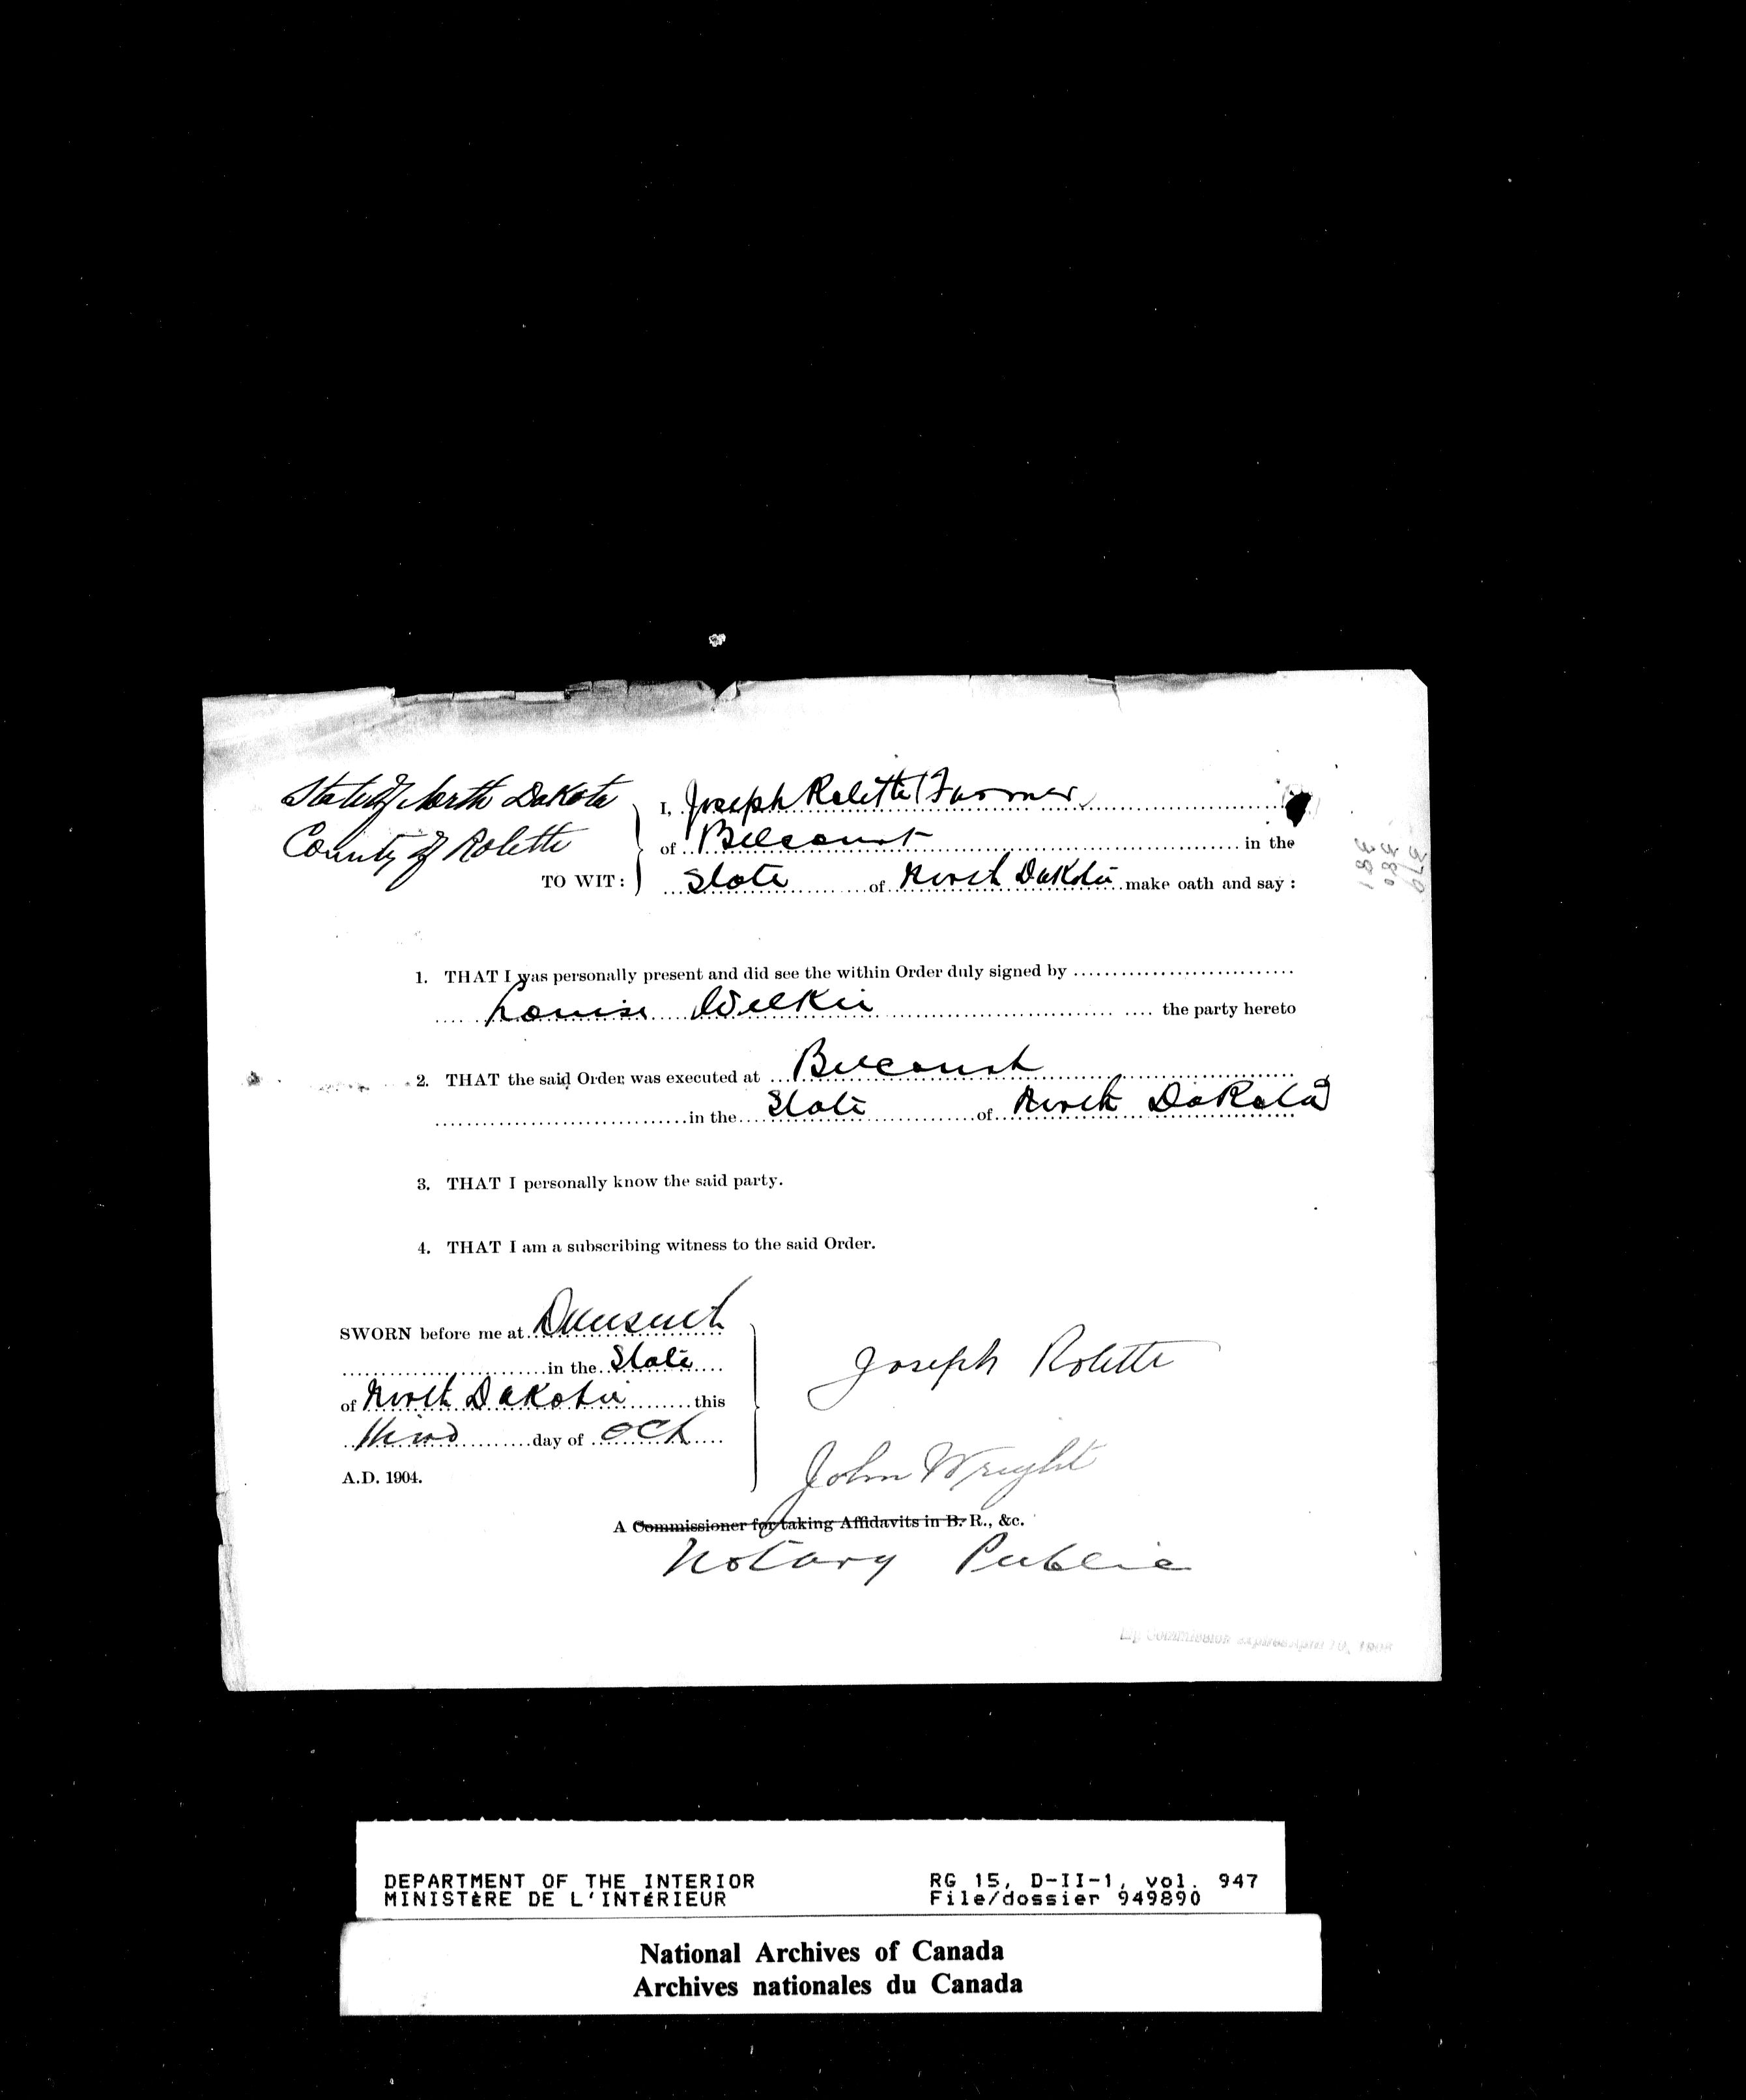 State of North Dakota
County of Rolette
TO WIT:
I, Joseph Rolette Farmer
of Belcourt in the
State of North Dakota make oath and say:
379
380
381
1. THAT I was personally present and did see the within Order duly signed by
Louise Wilkie the party hereto
2. THAT the said Order was executed at Belcourt
in the State of North Dakota
3. THAT I personally know the said party.
4. THAT I am a subscribing witness to the said Order.
SWORN before me at Dunseith
in the State
of North Dakota this
third day of Oct
A.D. 1904.
Joseph Rolette
John Wright
A Commissioner for taking Affidavits in B. R., &c.
Notary Public
My Commission expires April 10,
DEPARTMENT OF THE INTERIOR
MINISTÈRE DE L'INTÉRIEUR
RG 15, D-II-1, vol. 947
File/dossier 949890
National Archives of Canada
Archives nationales du Canada